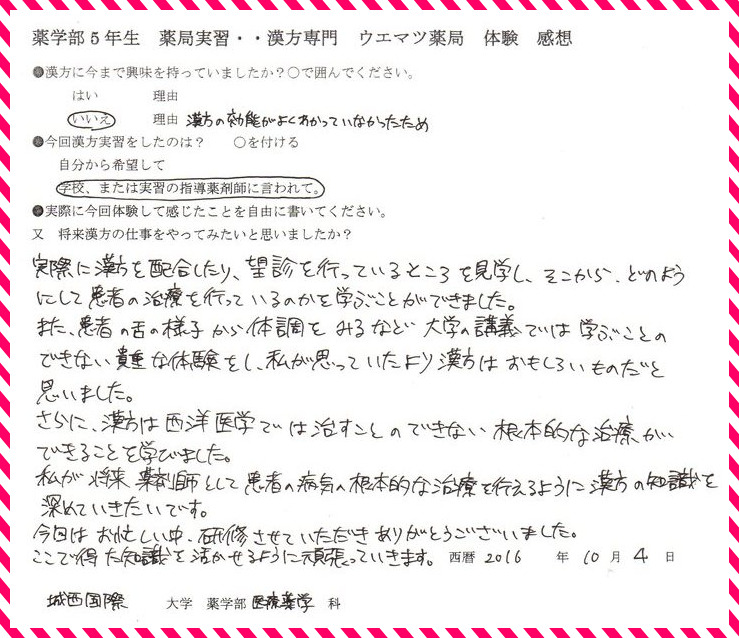 薬学部5年生 薬局実習・・漢方専門 ウエマツ薬局 体験 感想
●漢方に今まで興味を持っていましたか？○で囲んでください。
はい 理由
いいえ 理由 漢方の効能がよくわかっていなかったため
●今回漢方実習をしたのは？ ○を付ける
自分から希望して
学校、または実習の指導薬剤師に言われて。
●実際に今回体験して感じたことを自由に書いてください。
又 将来漢方の仕事をやってみたいと思いましたか？
実際に漢方を配合したり、望診を行っているところを見学し、そこから、どのよう
にして患者の治療を行っているのかを学ぶことができました。
また、患者の舌の様子から体調をみるなど大学の講義では学ぶことの
できない貴重な体験をし、私が思っていたより漢方はおもしろいものだと
思いました。
さらに、漢方は西洋医学では治すことのできない根本的な治療が
できることを学びました。
私が将来薬剤師として患者の病気の根本的な治療を行えるように漢方の知識を
深めていきたいです。
今回はお忙しい中、研修させていただきありがとうございました。
ここで得た知識を活かせるように頑張っていきます。 西暦 2016 年 10 月 4 日
城西国際 大学 薬学部 医療薬学 科